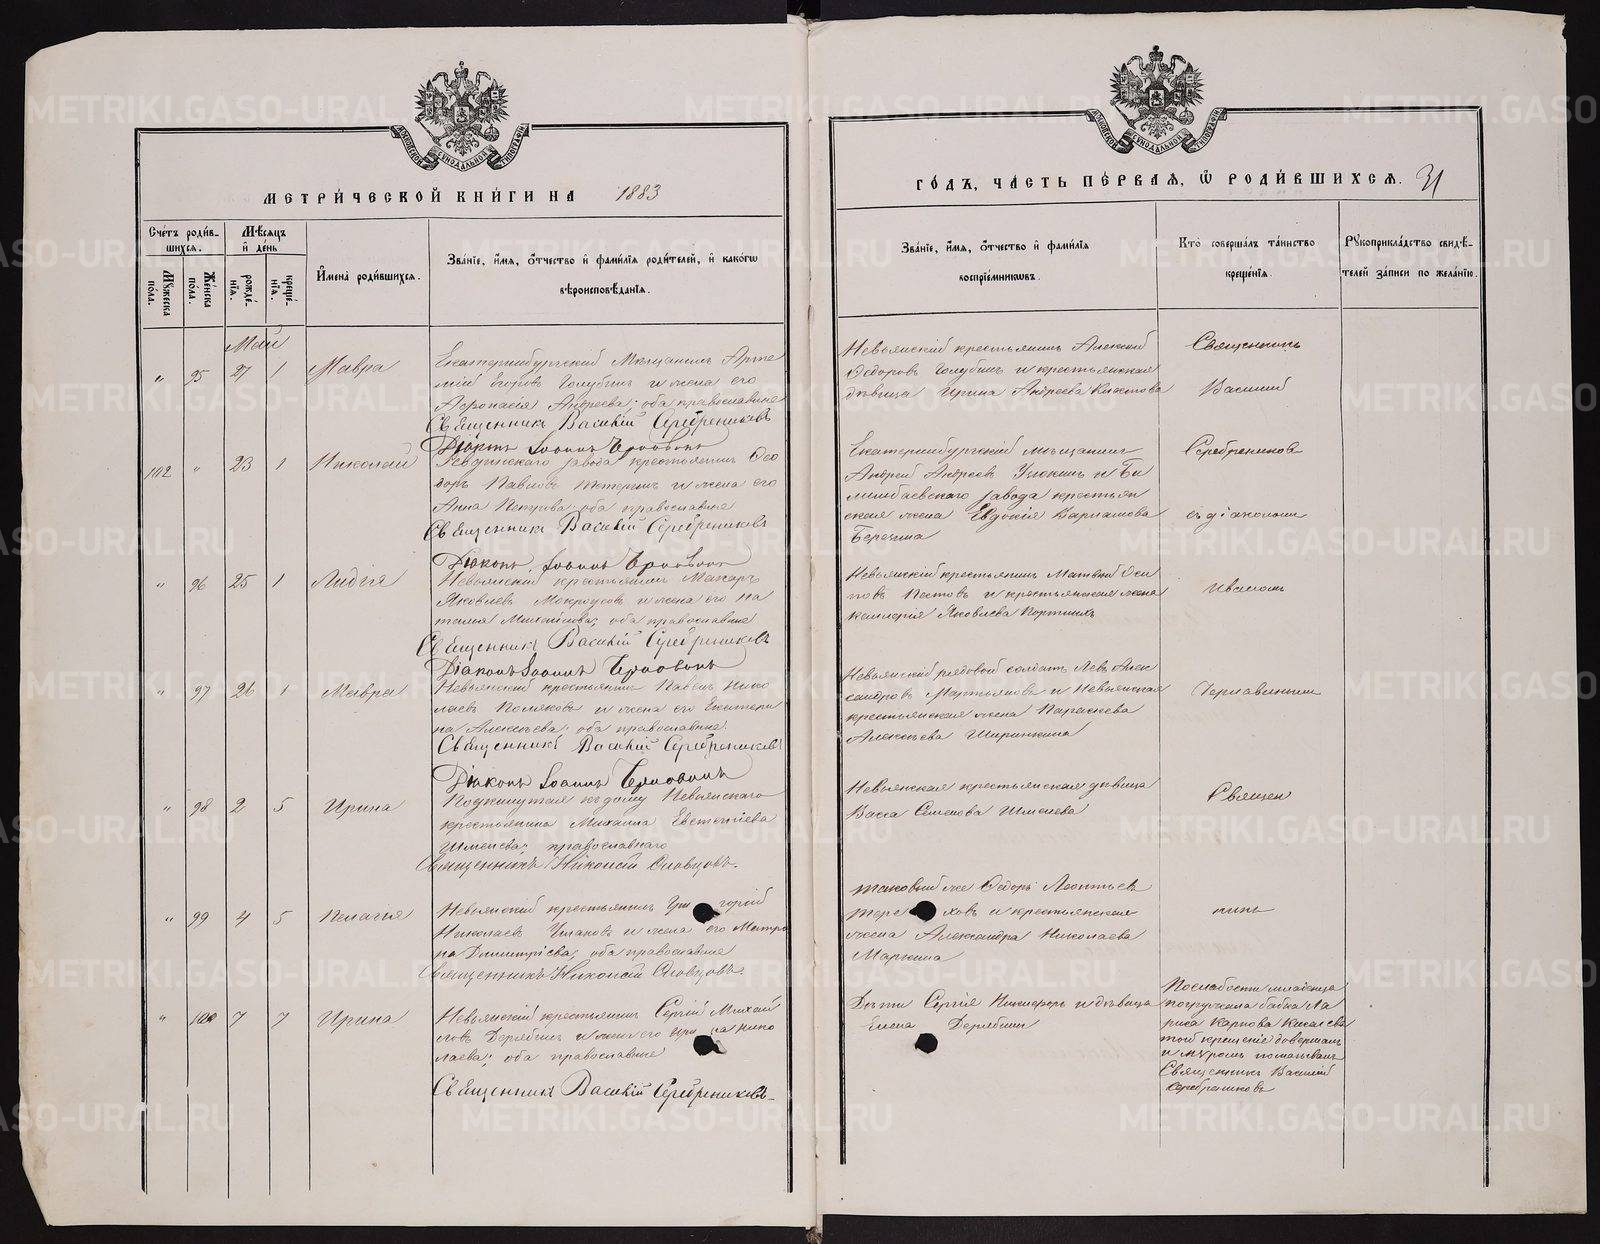 МОСКОВСКОЙ СУНОДАЛЬНОЙ ТИПОГРАФІИ
МЕТРИ́ЧЕСКОЙ КНИ́ГИ НА 1883
Сче́тъ роди́в-
шихся.
Мѣ́сяцъ
и҆ де́нь
Мꙋ́жеска
по́ла.
Же́нска
по́ла.
рожде́-
нія.
креще́-
нія.
И҆мена̀ роди́вшихся.
Зва́ніе, и҆́мя, ѻ҆́тчество и҆ фами́лія роди́телей, и҆ како́гѡ
вѣроисповѣ́данія.
Май
" 95 27 1 Мавра
Екатеринбургскій Мѣщанинъ Арте
мій Егоровъ Голубинъ и жена его
Афонасія Андреева; оба православные
Священникъ Василій Серебрениковъ
Діаконъ Іоаннъ
102 " 23 1 Николай
Ревдинскаго завода крестьянинъ Фео
доръ Павловъ и жена его
Анна Петрова; оба православные
Священникъ Василій Серебрениковъ
Діаконъ Іоаннъ
" 96 25 1 Лидія
Невьянскій крестьянинъ Макаръ
Яковлевъ Мокроусовъ и жена его На
талія Михайлова; оба православные
Священникъ Василій Серебрениковъ
Діаконъ Іоаннъ
" 97 26 1 Мавра
Невьянскій крестьянинъ Павелъ Нико
лаевъ Поляковъ и жена его Екатери
на Алексѣева; оба православные
Священникъ Василій Серебрениковъ
Діаконъ Іоаннъ
" 98 2 5 Ирина
Подкинутая къ дому Невьянскаго
крестьянина Михаила Евстегнѣева
Шмелева; православнаго
Священникъ Николай Словцовъ.
" 99 4 5 Пелагія
Невьянскій крестьянинъ Григорій
Николаевъ Ушаковъ и жена его Матро
на Димитріева; оба православные
Священникъ Николай Словцовъ.
" 100 7 7 Ирина
Невьянскій крестьянинъ Сергій Михай
ловъ Дерябинъ и жена его Нико
лаева; оба православные
Священникъ Василій Серебрениковъ
МОСКОВСКОЙ СУНОДАЛЬНОЙ ТИПОГРАФІИ
ГО́ДЪ, ЧА́СТЬ ПЕ́РВАЯ, Ѡ҆ РОДИ́ВШИХСЯ. 31
Зва́ніе, и҆́мя, ѻ҆́тчество и҆ фами́лія
воспріе́мникѡвъ.
Кто̀ соверша́лъ та́инство
креще́нія.
Рꙋкоприкла́дство свидѣ́-
телей за́писи по жела́нію.
Невьянскій крестьянинъ Алексѣй
Ѳедоровъ Голубинъ и крестьянская
дѣвица Ирина Андреева
Священникъ
Василій
Екатеринбургскій мѣщанинъ
Андрей Андреевъ и Би
лимбаевскаго завода крестьян
ская жена Евдокія Варламова
Серебрениковъ
съ діакономъ
Невьянскій крестьянинъ Матвѣй Оси
повъ Пестовъ и крестьянская жена
Яковлева Портныхъ
Иваномъ
Невьянскій рядовой солдатъ Левъ Алек
сандровъ Мартьяновъ и Невьянская
крестьянская жена Параскева
Алексѣева Ширинкина
Чернавинымъ
Невьянская крестьянская дѣвица
Васса Семенова Шмелева
Священ
таковый же Ѳедоръ Леонтьевъ
Тере ховъ и крестьянская
жена Александра Николаева
Маркина
никъ
Дѣти Сергія Никифоръ и дѣвица
Елена Дерябины
По слабости младенца
погружала бабка Ла
риса Карпова
той крещеніе довершалъ
и муромъ помазывалъ
Священникъ Василій
Серебрениковъ
METRIKI.GASO-URAL.RU